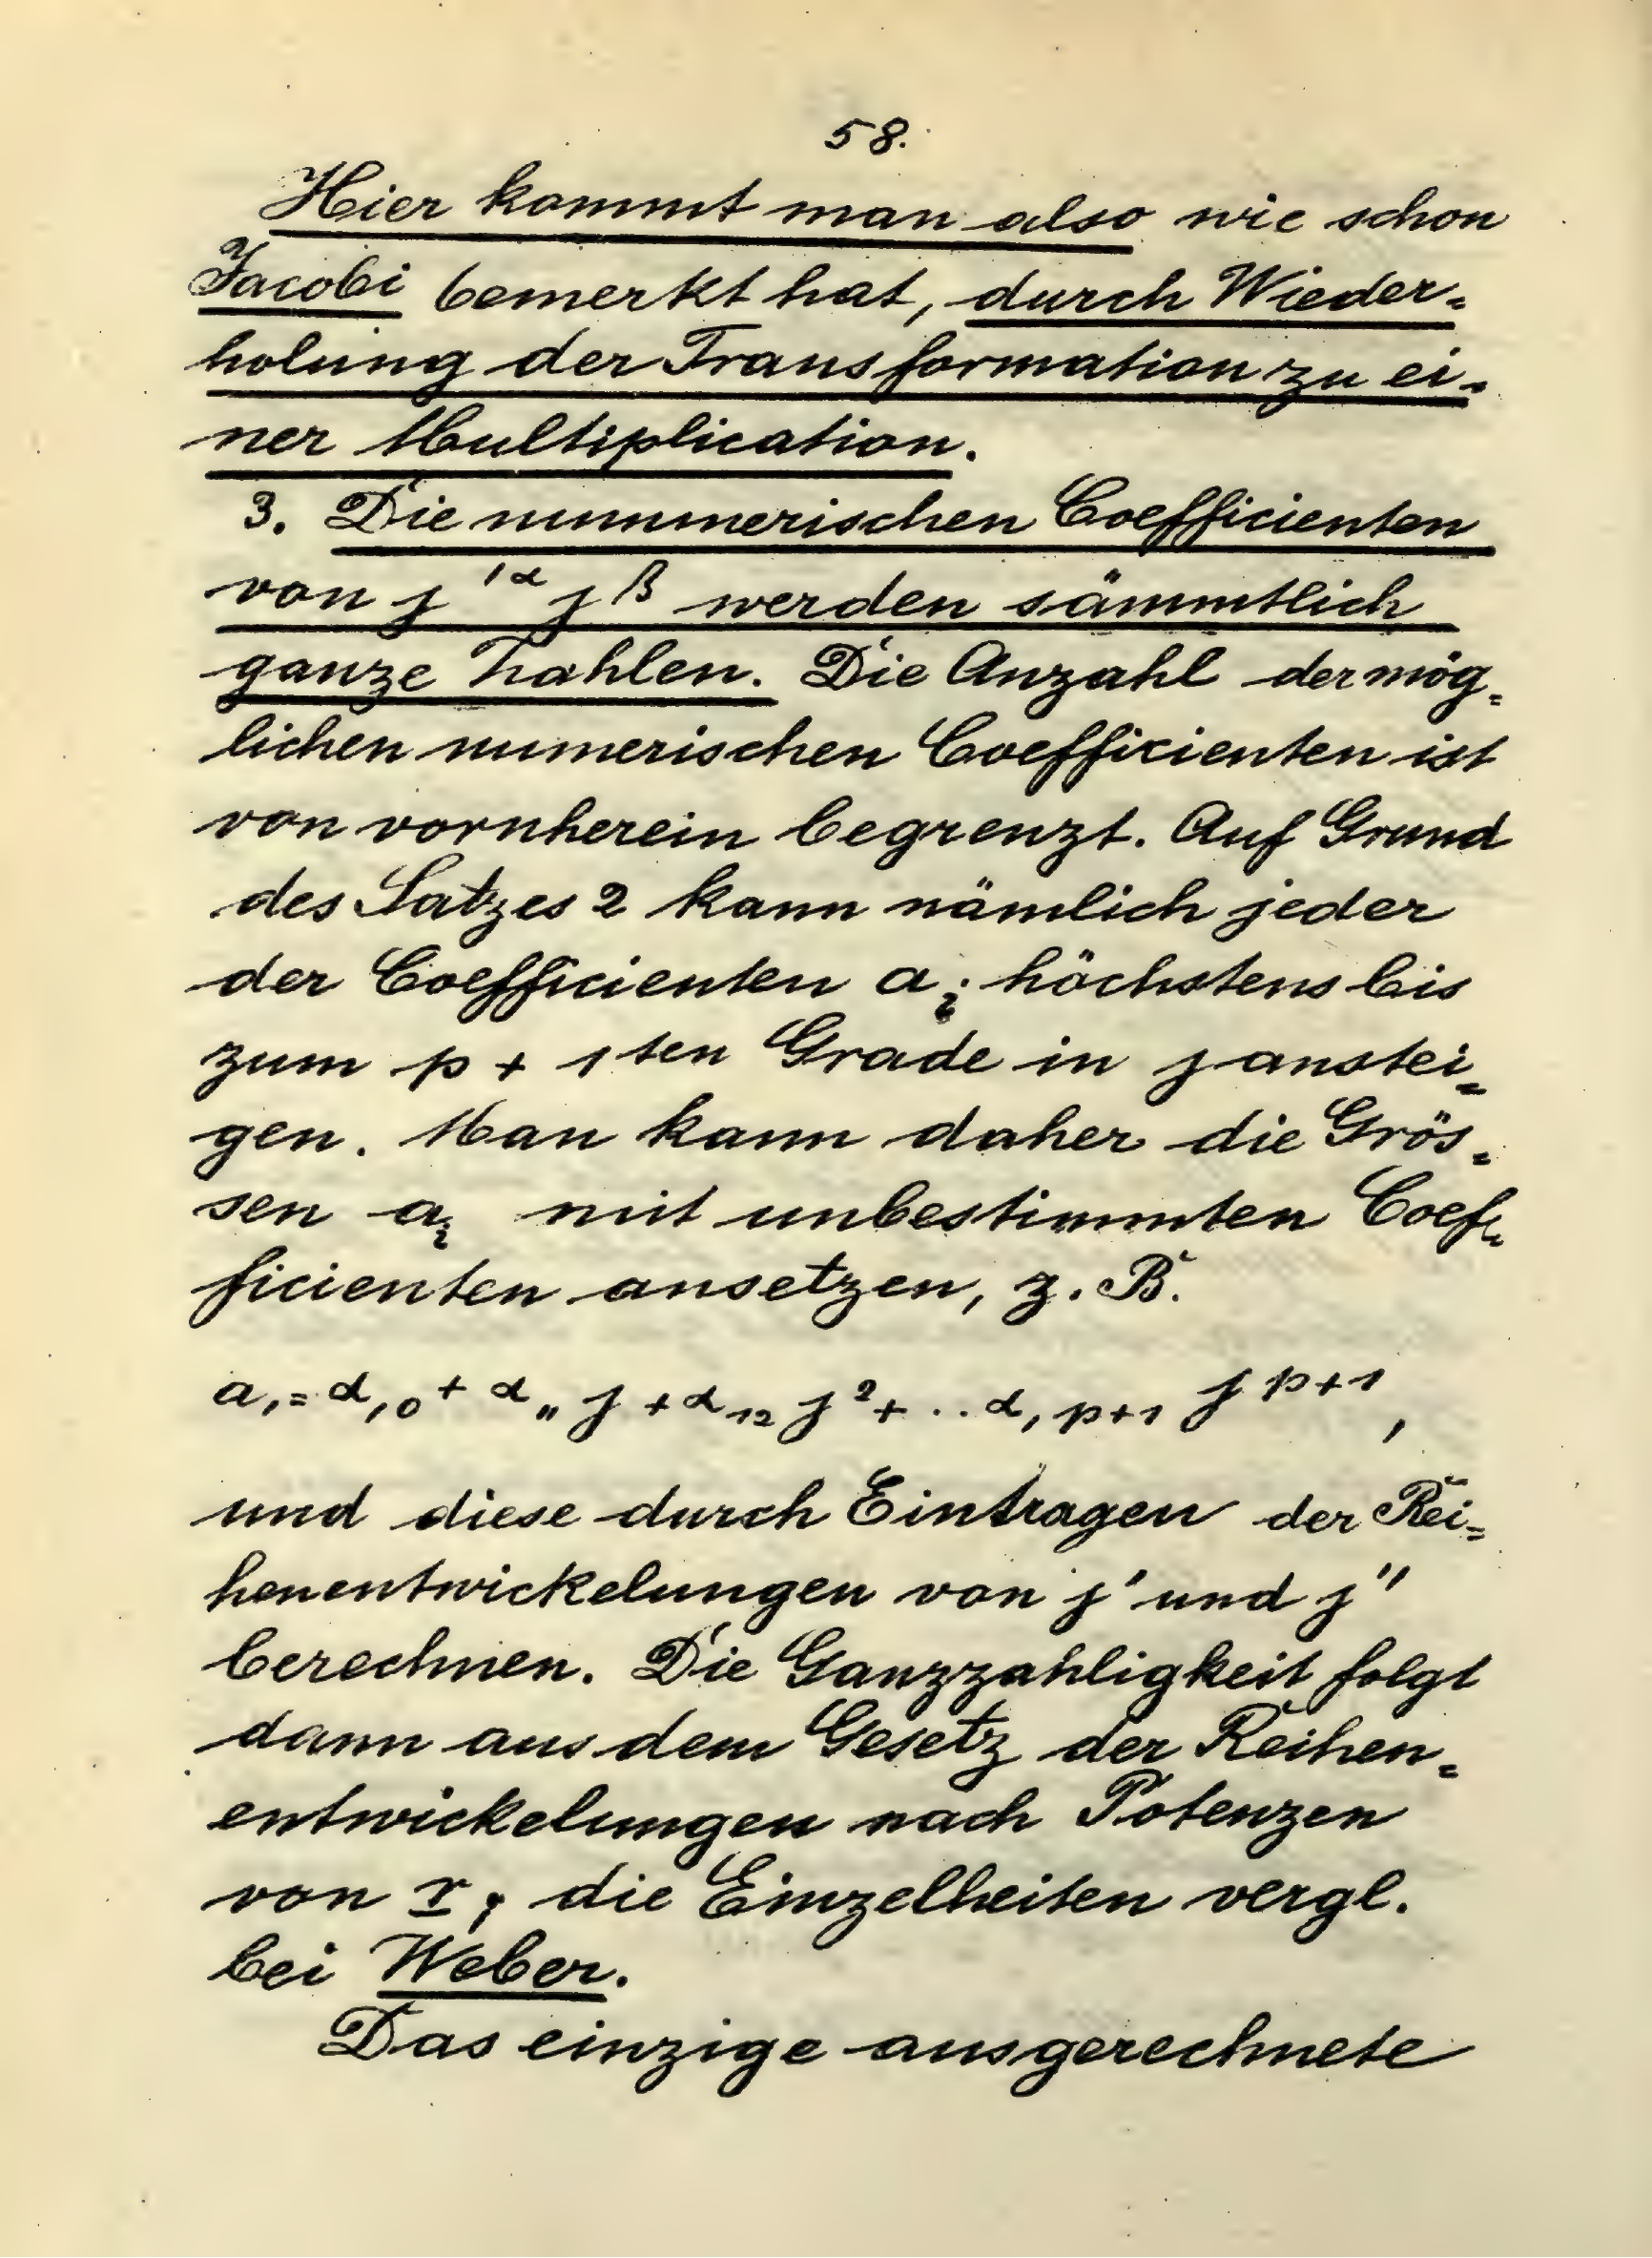 58.
Hier kommt man also wie schon
Jacobi bemerkt hat, durch Wieder-
holung der Transformation zu ei-
ner Multiplication.
3. Die nummerischen Coefficienten
von j'^α j^β werden sämmtlich
ganze Zahlen. Die Anzahl der mög-
lichen numerischen Coefficienten ist
von vornherein begrenzt. Auf Grund
des Satzes 2 kann nämlich jeder
der Coefficienten a_i höchstens bis
zum p + 1ten Grade in j anstei-
gen. Man kann daher die Grös-
sen a_i mit unbestimmten Coef-
ficienten ansetzen, z. B.
a_1 = α_10 + α_11 j + α_12 j^2 + .. α_1, p+1 j^p+1,
und diese durch Eintragen der Rei-
henentwickelungen von j' und j''
berechnen. Die Ganzzahligkeit folgt
dann aus dem Gesetz der Reihen-
entwickelungen nach Potenzen
von r; die Einzelheiten vergl.
bei Weber.
Das einzige ausgerechnete